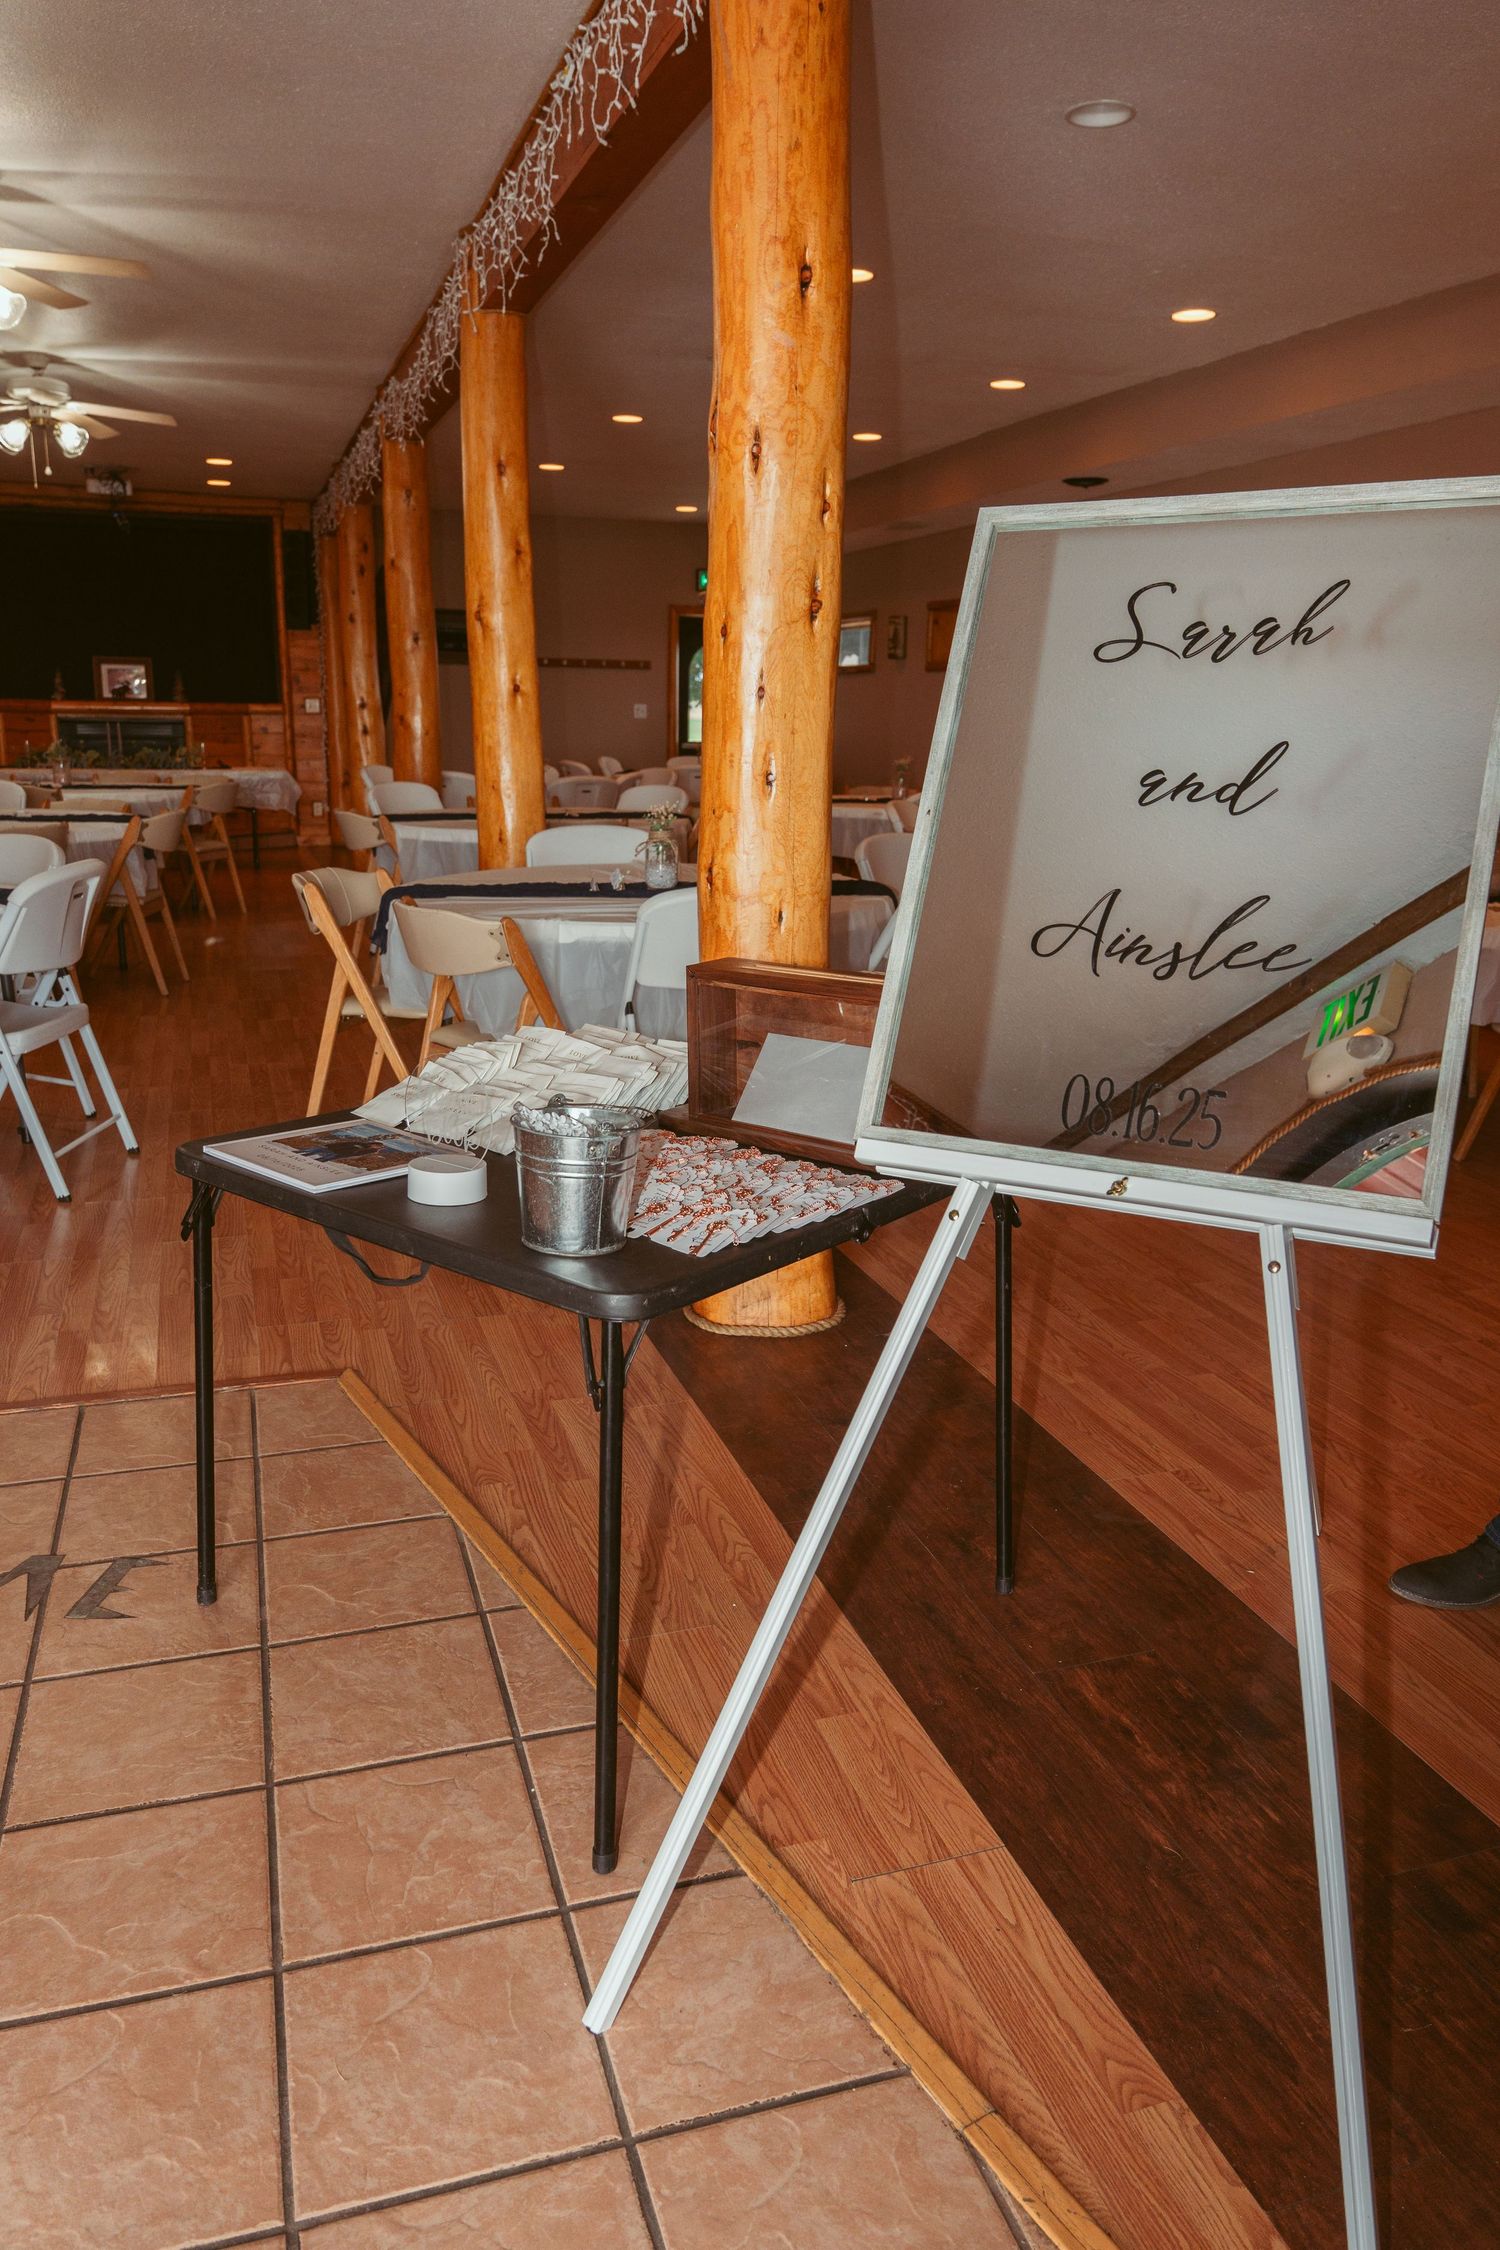 Sarah
and
Ainslee
08.16.25
EXIT
LOVE